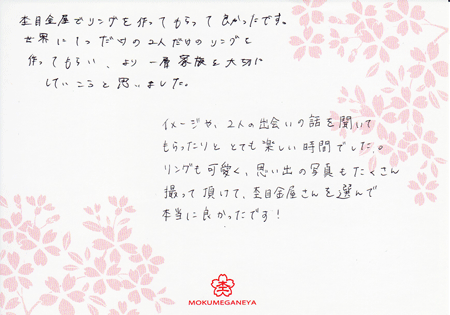 杢目金屋でリングを作ってもらって良かったです。
世界に1つだけの2人だけのリングを
作ってもらい、より一層家族を大切に
していこうと思いました。
イメージや、2人の出会いの話を聞いて
もらったりと とても楽しい時間でした。
リングも可愛く、思い出の写真もたくさん
撮って頂けて、杢目金屋さんを選んで
本当に良かったです!
杢
MOKUMEGANEYA